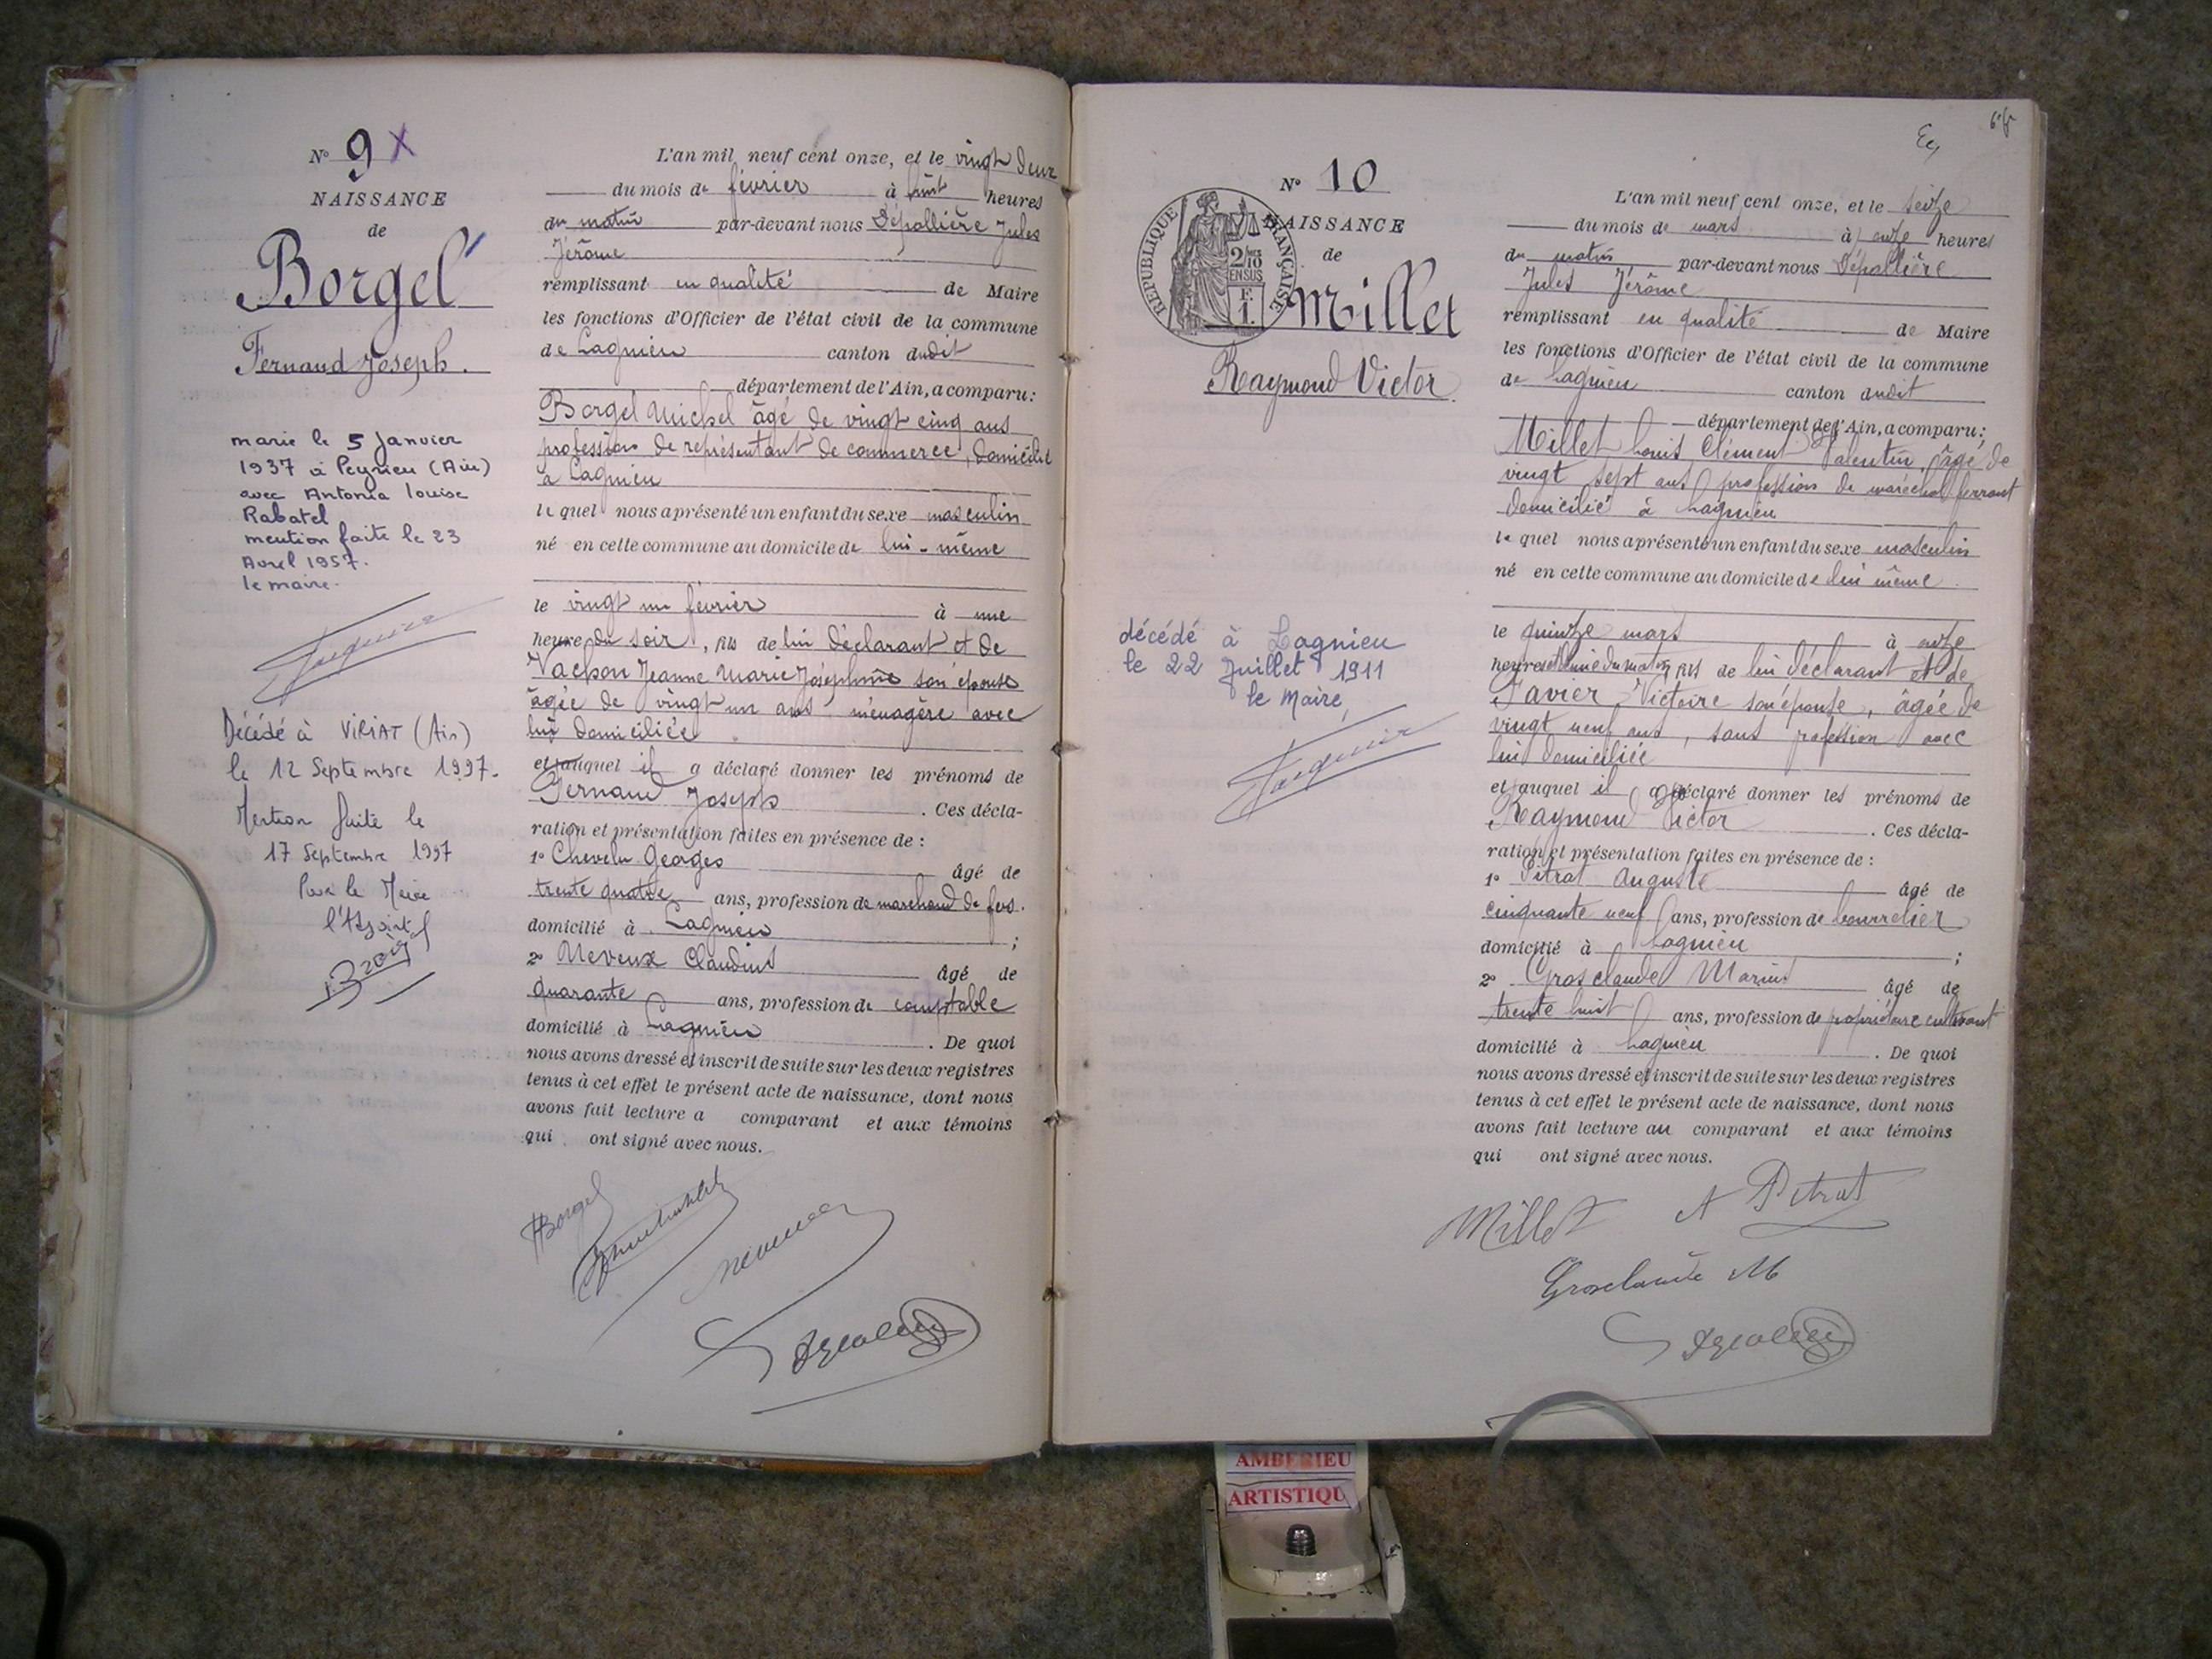 N° 9 X
NAISSANCE
de
Borgel
Fernand Joseph.
marié le 5 Janvier
1937 à Peyrieu (Ain)
avec Antonia Louise
Rabatel
mention faite le 23
Avril 1957.
le maire.
Décédé à VIRIAT (Ain)
le 12 Septembre 1997.
Mention faite le
17 Septembre 1997
Pour le Maire
L'an mil neuf cent onze, et le vingt deux
du mois de février à huit heures
du matin par-devant nous Dépollière Jules
Jérôme
remplissant en qualité de Maire
les fonctions d'Officier de l'état civil de la commune
de Lagnieu canton dudit
département de l'Ain, a comparu:
Borgel Michel âgé de vingt cinq ans
profession de représentant de commerce, domicilié
à Lagnieu
lequel nous a présenté un enfant du sexe masculin
né en cette commune au domicile de lui-même
le vingt un février à une
heure du soir, fils de lui déclarant et de
Vachon Jeanne Marie Joséphine son épouse
âgée de vingt un ans ménagère avec
lui domiciliée
et auquel il a déclaré donner les prénoms de
Fernand Joseph . Ces décla-
ration et présentation faites en présence de :
1° Chevelu Georges âgé de
trente quatre ans, profession de marchand de fers.
domicilié à Lagnieu ;
2° Neveux Claudius âgé de
quarante ans, profession de comptable
domicilié à Lagnieu . De quoi
nous avons dressé et inscrit de suite sur les deux registres
tenus à cet effet le présent acte de naissance, dont nous
avons fait lecture a comparant et aux témoins
qui ont signé avec nous.
Borgel
N° 10
NAISSANCE
de
REPUBLIQUE FRANÇAISE
2/10
EN SUS
F.
1.
Millet
Raymond Victor.
décédé à Lagnieu
le 22 Juillet 1911
le Maire,
L'an mil neuf cent onze, et le seize
du mois de mars à onze heures
du matin par-devant nous Dépollière
Jules Jérôme
remplissant en qualité de Maire
les fonctions d'Officier de l'état civil de la commune
de Lagnieu canton dudit
département de l'Ain, a comparu:
Millet Louis Clément Valentin, âgé de
vingt sept ans profession de maréchal ferrant
domicilié à Lagnieu
lequel nous a présenté un enfant du sexe masculin
né en cette commune au domicile de lui même
le quinze mars à onze
heures et demie du matin, fils de lui déclarant et de
Favier Victoire son épouse, âgée de
vingt neuf ans, sans profession avec
lui domiciliée
et auquel il a déclaré donner les prénoms de
Raymond Victor . Ces décla-
ration et présentation faites en présence de :
1° Pitrat Auguste âgé de
cinquante neuf ans, profession de bourrelier
domicilié à Lagnieu ;
2° Grosclaude Marius âgé de
trente huit ans, profession de propriétaire cultivant
domicilié à Lagnieu . De quoi
nous avons dressé et inscrit de suite sur les deux registres
tenus à cet effet le présent acte de naissance, dont nous
avons fait lecture au comparant et aux témoins
qui ont signé avec nous.
Millet A Pitrat
Grosclaude M
AMBERIEU
ARTISTIQU